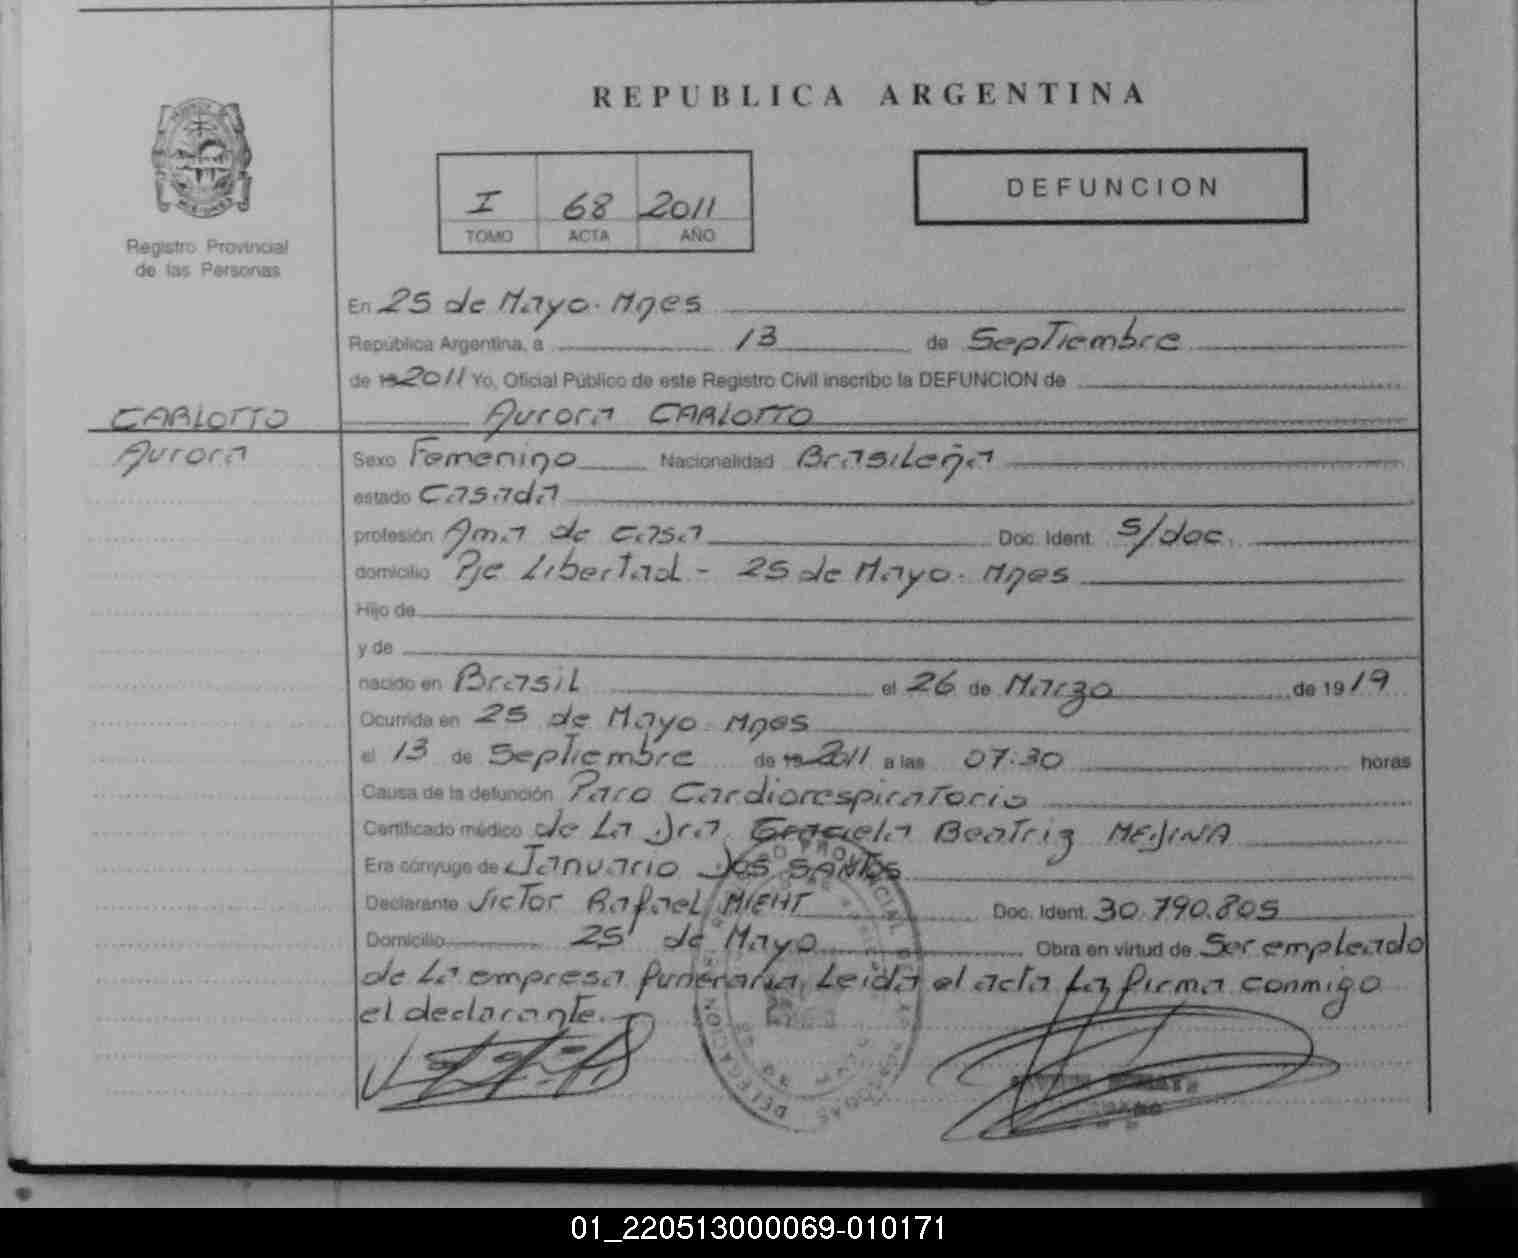 REPUBLICA ARGENTINA
DEFUNCION
I 68 2011
TOMO ACTA AÑO
Registro Provincial
de las Personas
En 25 de Mayo. Mnes
República Argentina, a 13 de Septiembre
de 19 2011 Yo, Oficial Público de este Registro Civil inscribo la DEFUNCION de
CARLOTTO
Aurora
Aurora CARLOTTO
Sexo Femenino Nacionalidad Brasileña
estado Casada
profesión Ama de casa Doc. Ident. S/doc.
domicilio Pje Libertad - 25 de Mayo. Mnes
Hijo de
y de
nacido en Brasil el 26 de Marzo de 1919
Ocurrida en 25 de Mayo. Mnes
el 13 de Septiembre de 19 2011 a las 07:30 horas
Causa de la defunción Paro Cardiorespiratorio
Certificado médico de La Dra. Graciela Beatriz MEDINA
Era cónyuge de Januario Dos SANTOS
Declarante Victor Rafael MIEHT Doc. Ident. 30.790.805
Domicilio 25 de Mayo Obra en virtud de Ser empleado
de La empresa funeraria, Leida el acta La firma conmigo
el declarante.
01_220513000069-010171